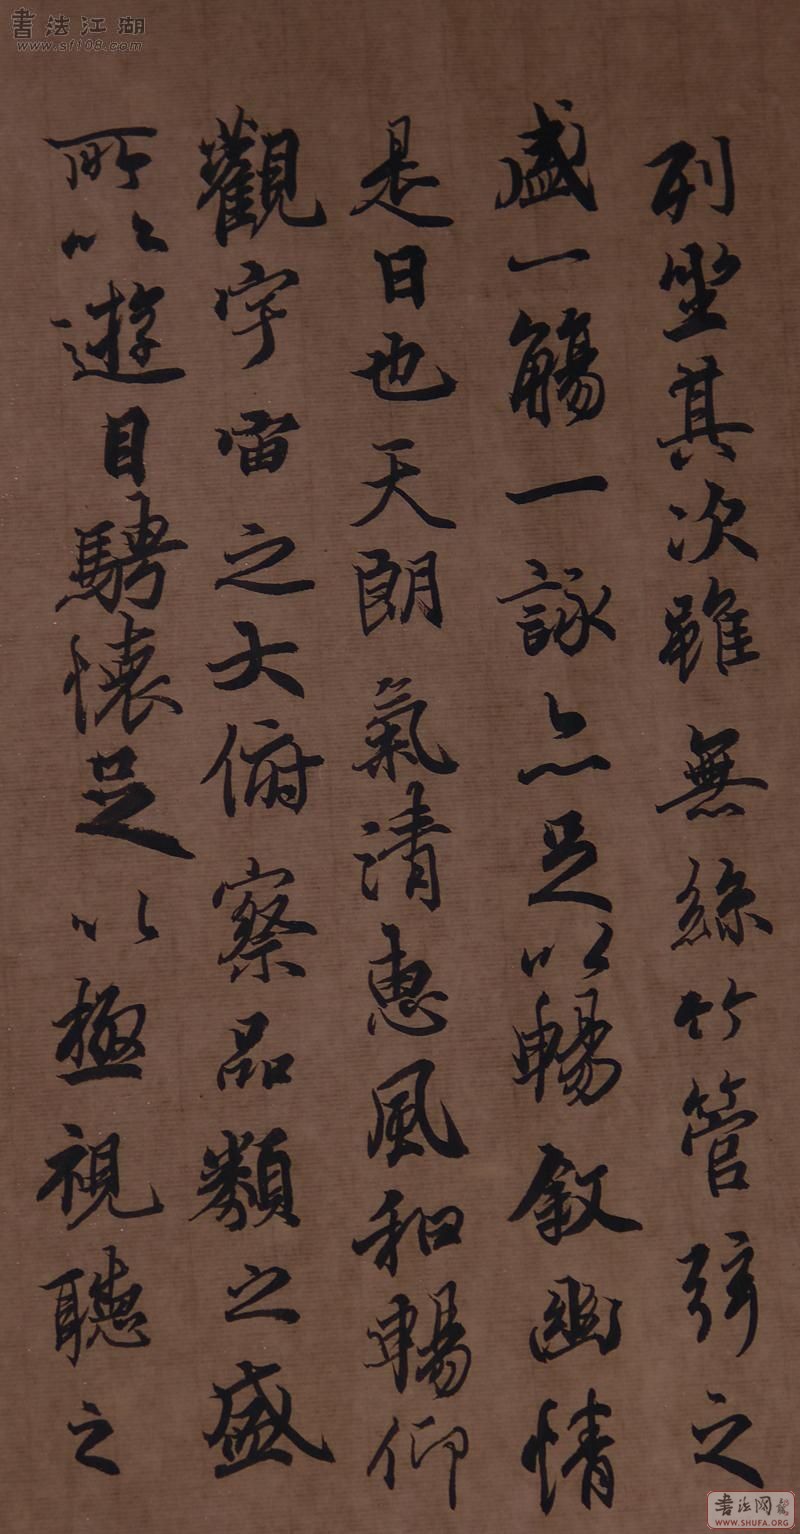 列坐其次雖無絲竹管弦之
盛一觴一詠亦足以暢敘幽情
是日也天朗氣清惠風和暢仰
觀宇宙之大俯察品類之盛
所以遊目騁懷足以極視聽之
書法江湖
www.sf108.com
書法网
WWW.SHUFA.ORG